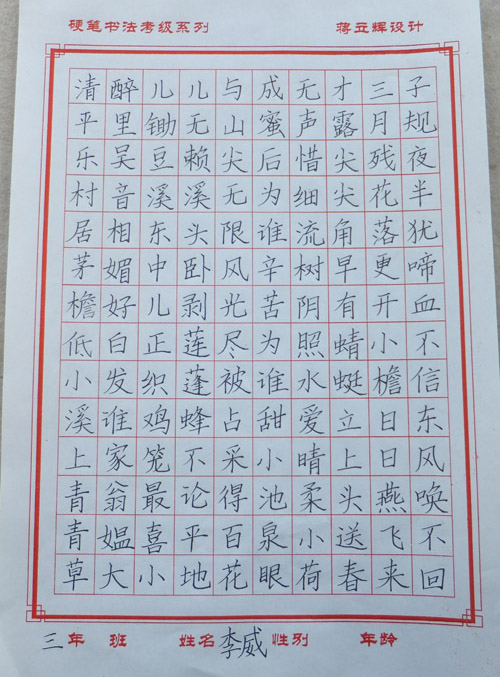 硬笔书法考级系列 蒋立辉设计
清平乐村居茅檐低小溪上青青草
醉里吴音相媚好白发谁家翁媪大
儿锄豆溪东中儿正织鸡笼最喜小
儿无赖溪头卧剥莲蓬蜂不论平地
与山尖无限风光尽被占采得百花
成蜜后为谁辛苦为谁甜小池泉眼
无声惜细流树阴照水爱晴柔小荷
才露尖尖角早有蜻蜓立上头送春
三月残花落更开小檐日日燕飞来
子规夜半犹啼血不信东风唤不回
三年 班 姓名李威性别 年龄